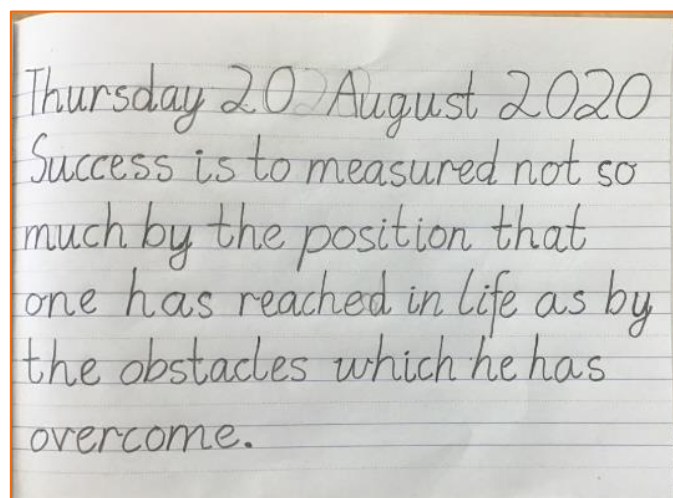 Thursday 20 August 2020
Success is to measured not so
much by the position that
one has reached in life as by
the obstacles which he has
overcome.